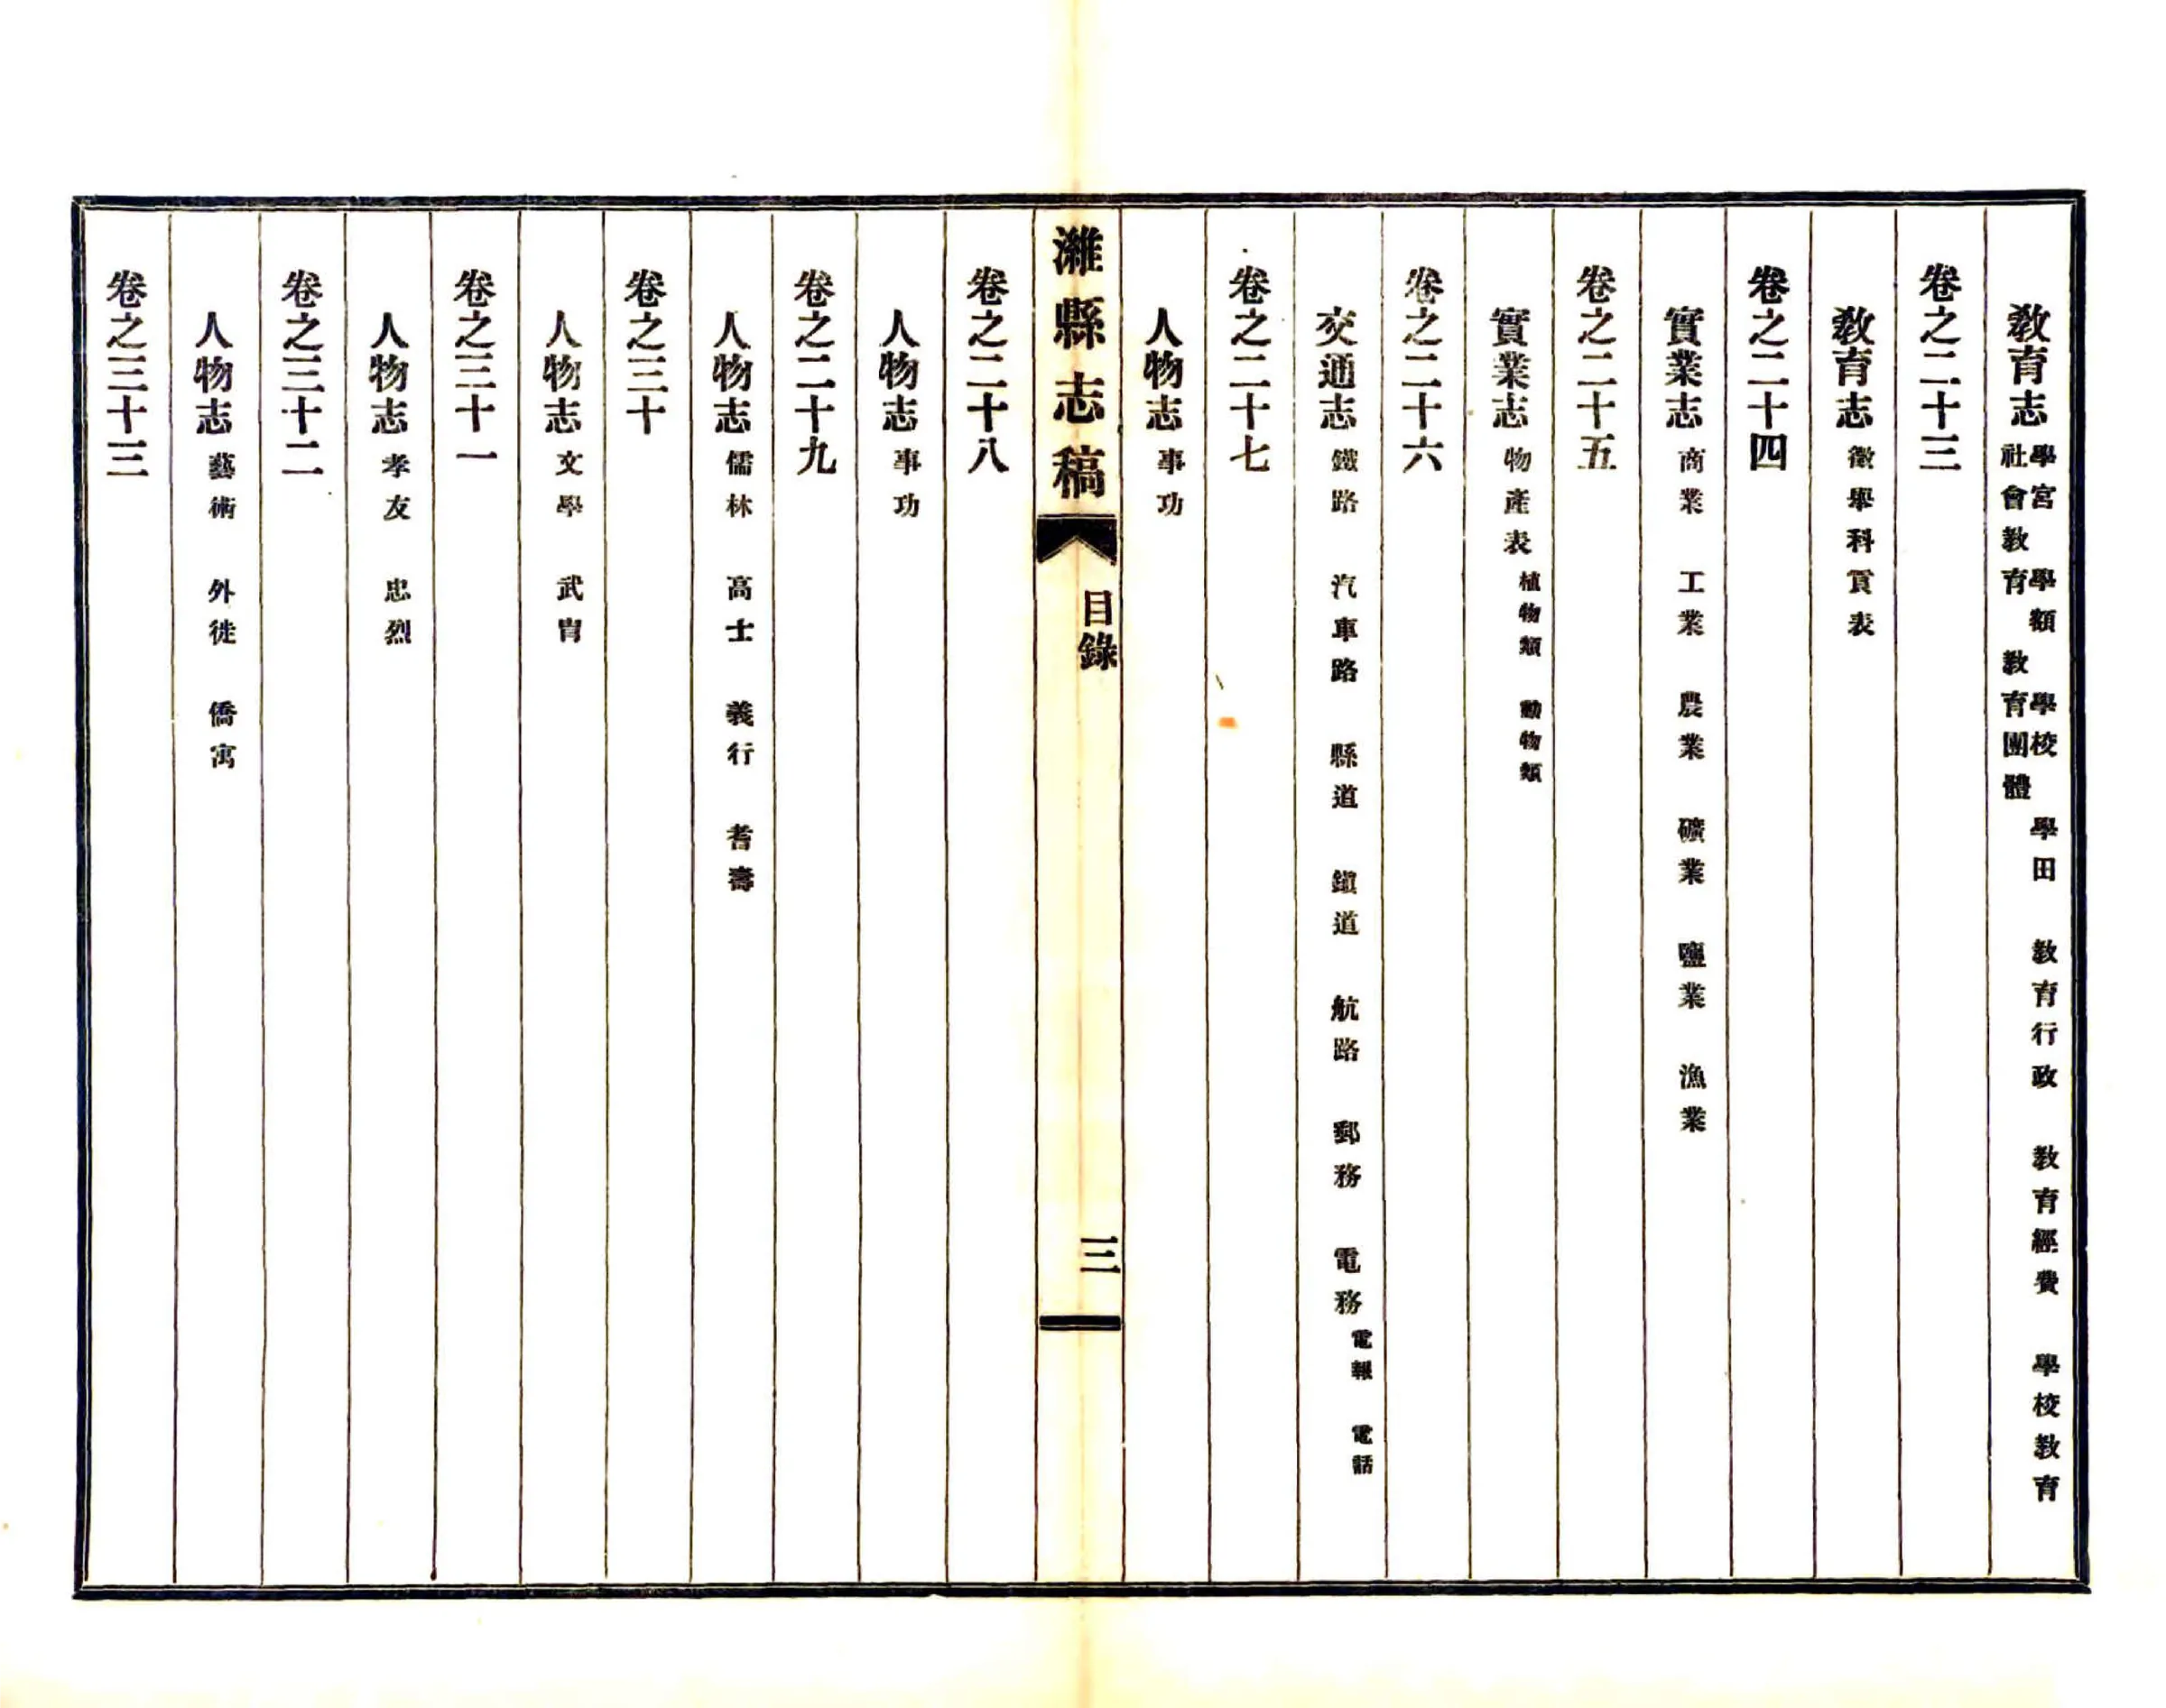 教育志 學宮 學額 學校 學田 教育行政 教育經費 學校教育
社會教育 教育團體
卷之二十三
教育志 徵舉科貢表
卷之二十四
實業志 商業 工業 農業 礦業 鹽業 漁業
卷之二十五
實業志 物產表 植物類 動物類
卷之二十六
交通志 鐵路 汽車路 縣道 鎭道 航路 郵務 電務 電報 電話
卷之二十七
人物志 事功
濰縣志稿 目錄 三
卷之二十八
人物志 事功
卷之二十九
人物志 儒林 高士 義行 耆壽
卷之三十
人物志 文學 武胄
卷之三十一
人物志 孝友 忠烈
卷之三十二
人物志 藝術 外徙 僑寓
卷之三十三